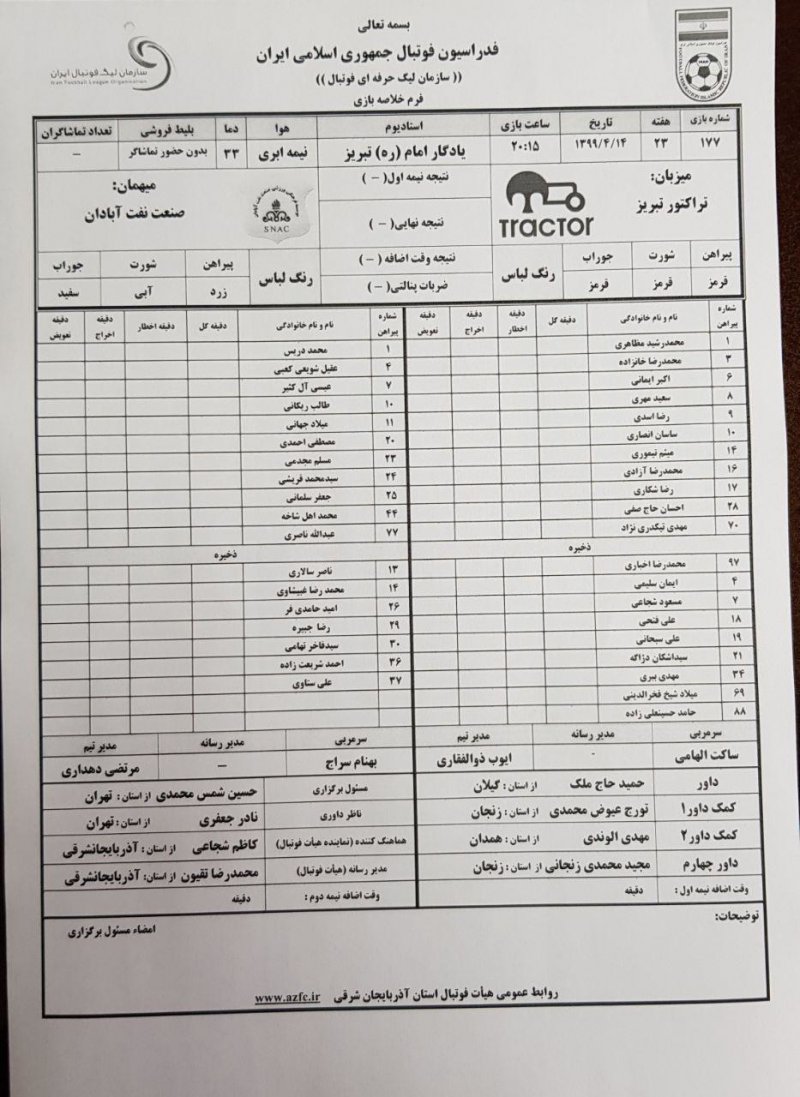 بسمه تعالی
فدراسیون فوتبال جمهوری اسلامی ایران
(( سازمان لیگ حرفه ای فوتبال ))
فرم خلاصه بازی
سازمان لیگ فوتبال ایران
Iran Football League Organization
شماره بازی هفته تاریخ ساعت بازی استادیوم هوا دما بلیط فروشی تعداد تماشاگران
۱۷۷ ۲۳ ۱۳۹۹/۴/۱۴ ۲۰:۱۵ یادگار امام (ره) تبریز نیمه ابری ۳۳ بدون حضور تماشاگر –
میزبان:
تراکتور تبریز
TRACTOR
نتیجه نیمه اول( – )
نتیجه نهایی( – )
نتیجه وقت اضافه( – )
ضربات پنالتی( – )
میهمان:
صنعت نفت آبادان
SNAC
پیراهن شورت جوراب رنگ لباس
قرمز قرمز قرمز
رنگ لباس پیراهن شورت جوراب
زرد آبی سفید
شماره پیراهن نام و نام خانوادگی دقیقه گل دقیقه اخطار دقیقه اخراج دقیقه تعویض
۱ محمدرشید مظاهری
۳ محمدرضا خانزاده
۶ اکبر ایمانی
۸ سعید مهری
۹ رضا اسدی
۱۰ ساسان انصاری
۱۴ میثم تیموری
۱۶ محمدرضا آزادی
۱۷ رضا شکاری
۲۸ احسان حاج صفی
۷۰ مهدی تیکدری نژاد
ذخیره
۹۷ محمدرضا اخباری
۴ ایمان سلیمی
۷ مسعود شجاعی
۱۸ علی فتحی
۱۹ علی سبحانی
۲۱ سیداشکان دژاگه
۳۴ مهدی ببری
۶۹ میلاد شیخ فخرالدینی
۸۸ حامد حسینعلی زاده
شماره پیراهن نام و نام خانوادگی دقیقه گل دقیقه اخطار دقیقه اخراج دقیقه تعویض
۱ محمد دریس
۴ عقیل شویعی کعبی
۷ عیسی آل کثیر
۱۰ طالب ریکانی
۱۱ میلاد جهانی
۲۰ مصطفی احمدی
۲۳ مسلم مجدمی
۲۴ سیدمحمد قریشی
۲۵ جعفر سلمانی
۴۴ محمد اهل شاخه
۷۷ عبدالله ناصری
ذخیره
۱۳ ناصر سالاری
۱۴ محمد رضا غبیشاوی
۲۶ امید حامدی فر
۲۹ رضا جبیره
۳۰ سیدفاخر تهامی
۳۶ احمد شریعت زاده
۳۷ علی سناوی
سرمربی مدیر رسانه مدیر تیم
ساکت الهامی - ایوب ذوالفقاری
سرمربی مدیر رسانه مدیر تیم
بهنام سراج – مرتضی دهداری
داور حمید حاج ملک از استان: گیلان
کمک داور۱ تورج عیوض محمدی از استان: زنجان
کمک داور۲ مهدی الوندی از استان: همدان
داور چهارم مجید محمدی زنجانی از استان: زنجان
وقت اضافه نیمه اول: دقیقه
مسئول برگزاری حسین شمس محمدی از استان: تهران
ناظر داوری نادر جعفری از استان: تهران
هماهنگ کننده (نماینده هیأت فوتبال) کاظم شجاعی از استان: آذربایجانشرقی
مدیر رسانه (هیأت فوتبال) محمدرضا تقیون از استان: آذربایجانشرقی
وقت اضافه نیمه دوم: دقیقه
توضیحات:
امضاء مسئول برگزاری
روابط عمومی هیأت فوتبال استان آذربایجان شرقی www.azfc.ir